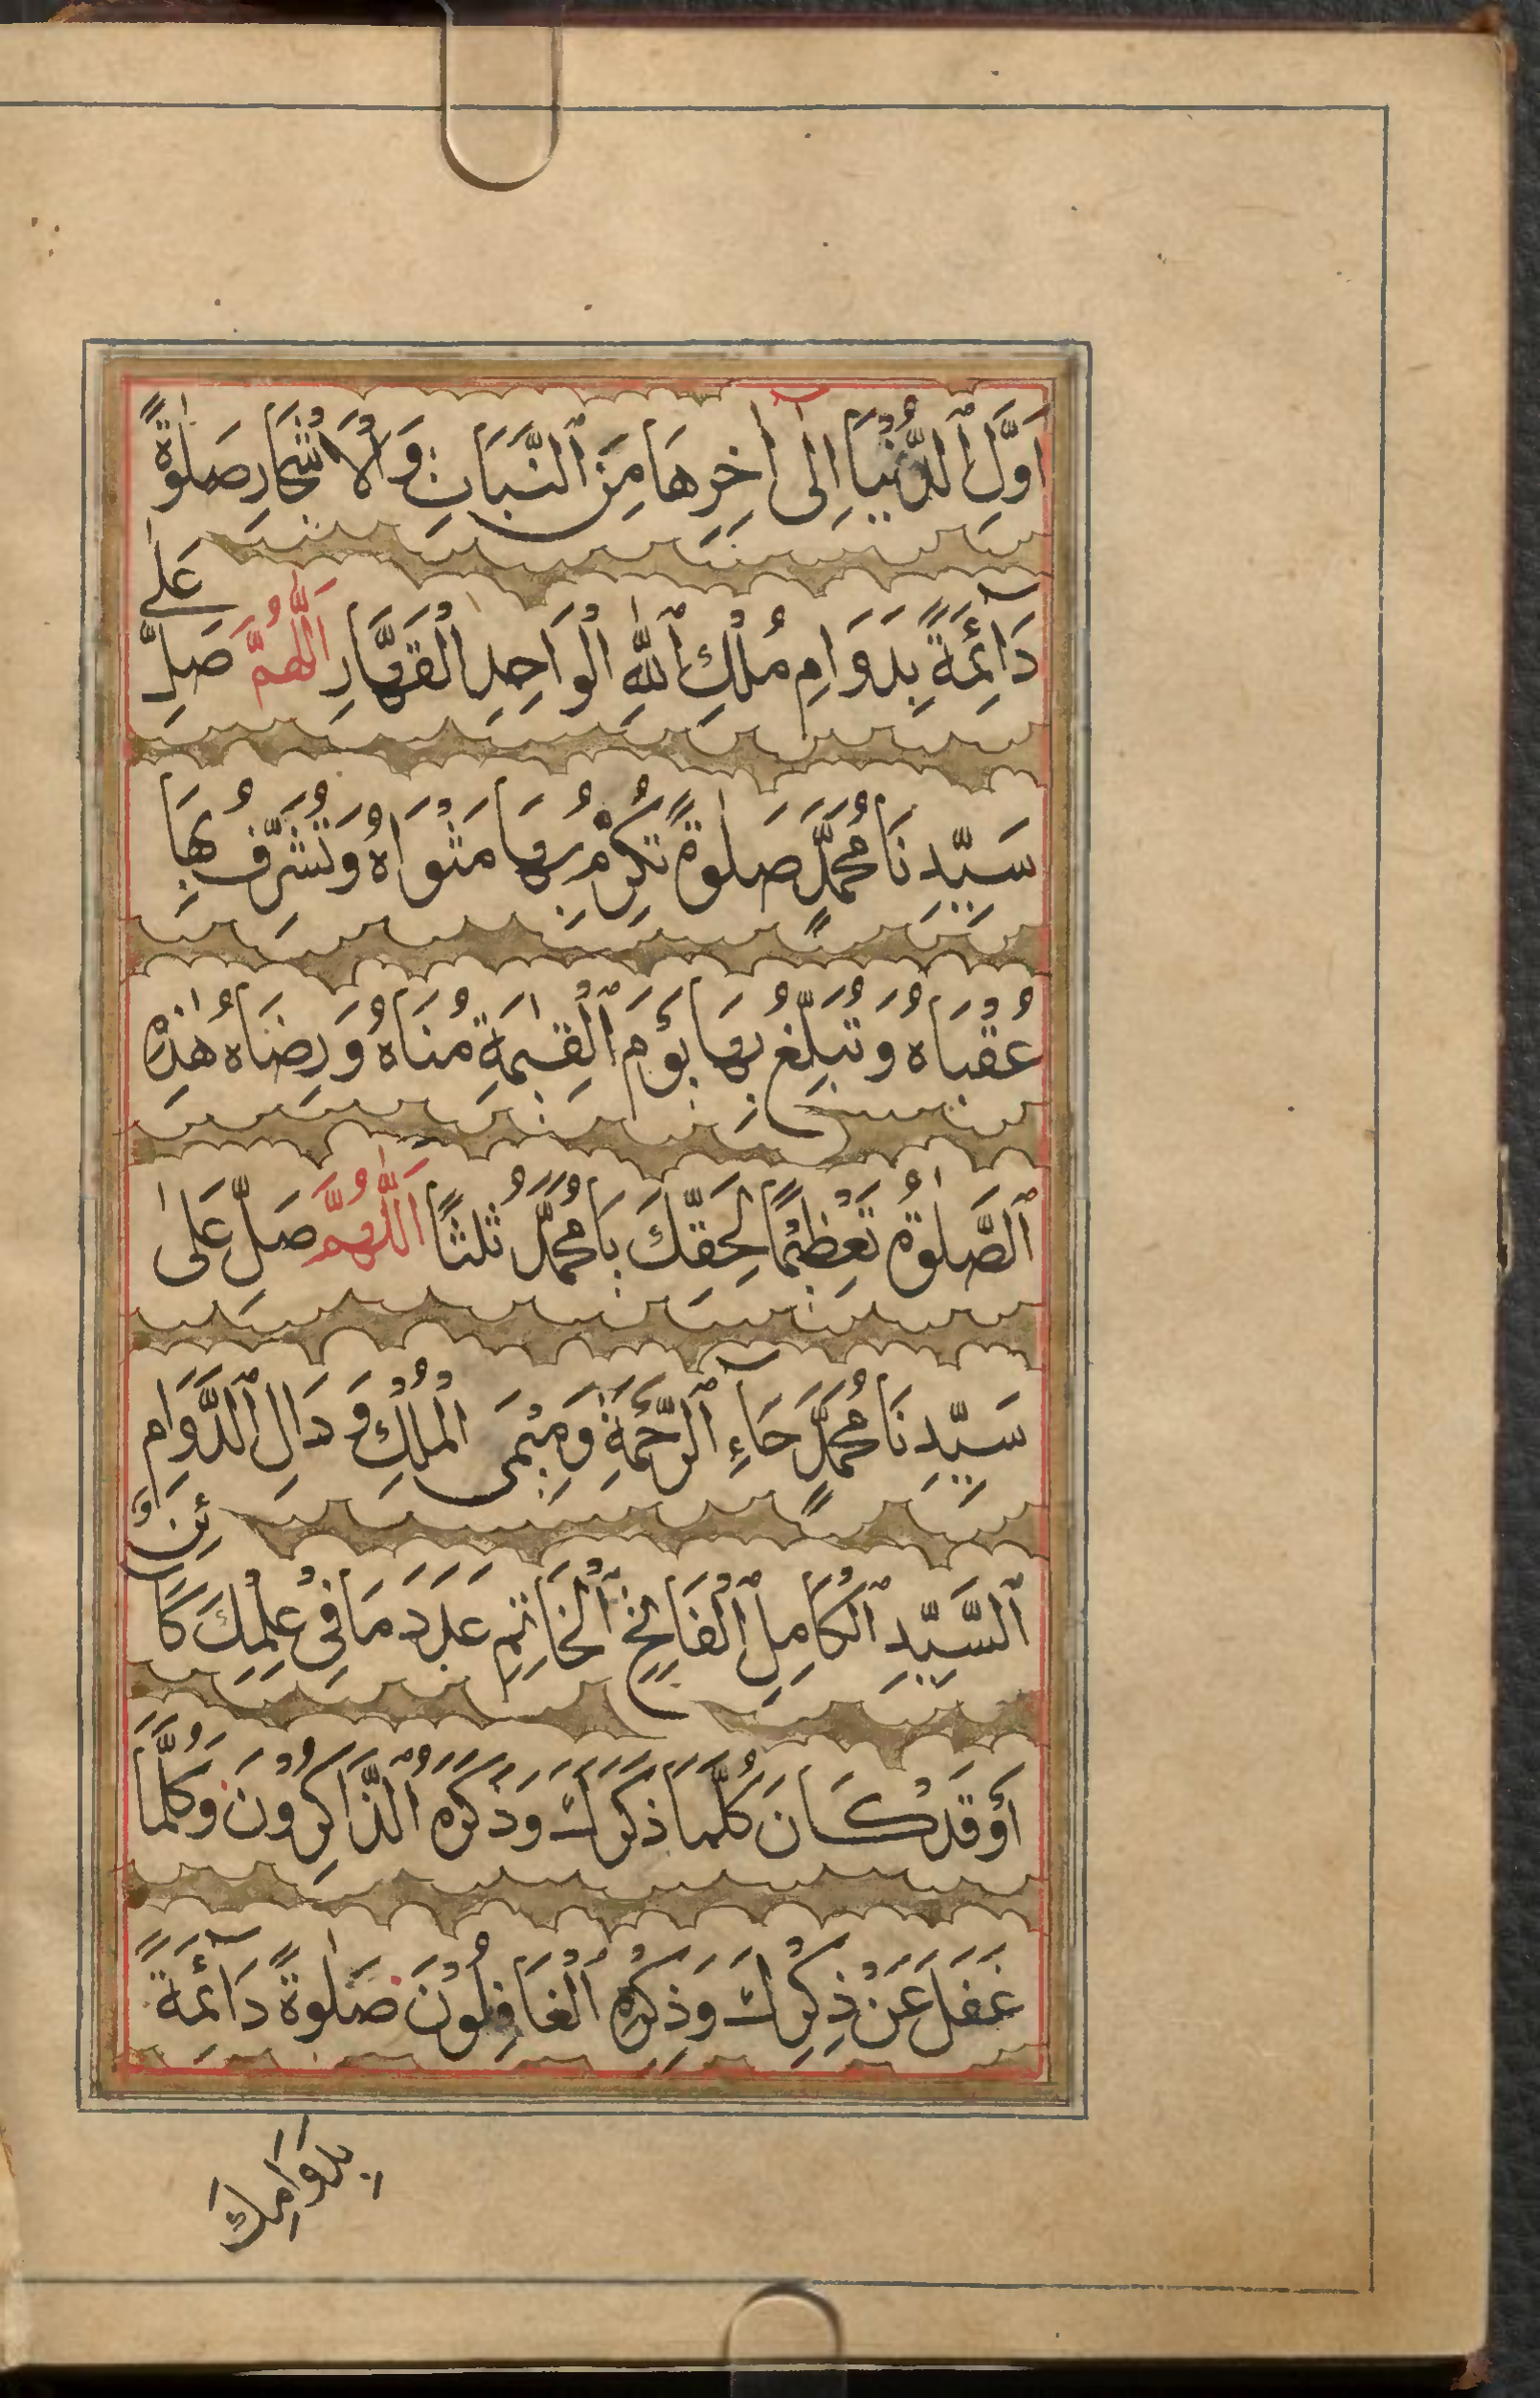 اَوَّلِ ٱلدُّنْيَا اِلٰى اٰخِرِهَا مِنَ ٱلنَّبَاتِ وَالْاَشْجَارِ صَلٰوةً
دَآئِمَةً بِدَوَامِ مُلْكِ ٱللّٰهِ الْوَاحِدِ الْقَهَّارِ اَللّٰهُمَّ صَلِّ عَلٰى
سَيِّدِنَا مُحَمَّدٍ صَلٰوةً تُكْرِمُ بِهَا مَثْوَاهُ وَتُشَرِّفُ بِهَا
عُقْبَاهُ وَتُبَلِّغُ بِهَا يَوْمَ ٱلْقِيٰمَةِ مُنَاهُ وَرِضَاهُ هٰذِهِ
ٱلصَّلٰوةُ تَعْظِيْمًا لِحَقِّكَ يَا مُحَمَّدُ ثَلٰثًا اَللّٰهُمَّ صَلِّ عَلٰى
سَيِّدِنَا مُحَمَّدٍ حَآءِ ٱلرَّحْمَةِ وَمِيْمَىِ الْمُلْكِ وَدَالِ ٱلدَّوَامِ
ٱلسَّيِّدِ ٱلْكَامِلِ ٱلْفَاتِحِ ٱلْخَاتِمِ عَدَدَ مَا فِىْ عِلْمِكَ كَائِنٌ
أَوْ قَدْ كَانَ كُلَّمَا ذَكَرَكَ وَذَكَرَهُ ٱلذَّاكِرُوْنَ وَكُلَّمَا
غَفَلَ عَنْ ذِكْرِكَ وَذِكْرِهِ ٱلْغَافِلُوْنَ صَلٰوةً دَآئِمَةً
بِدَوَامِكَ